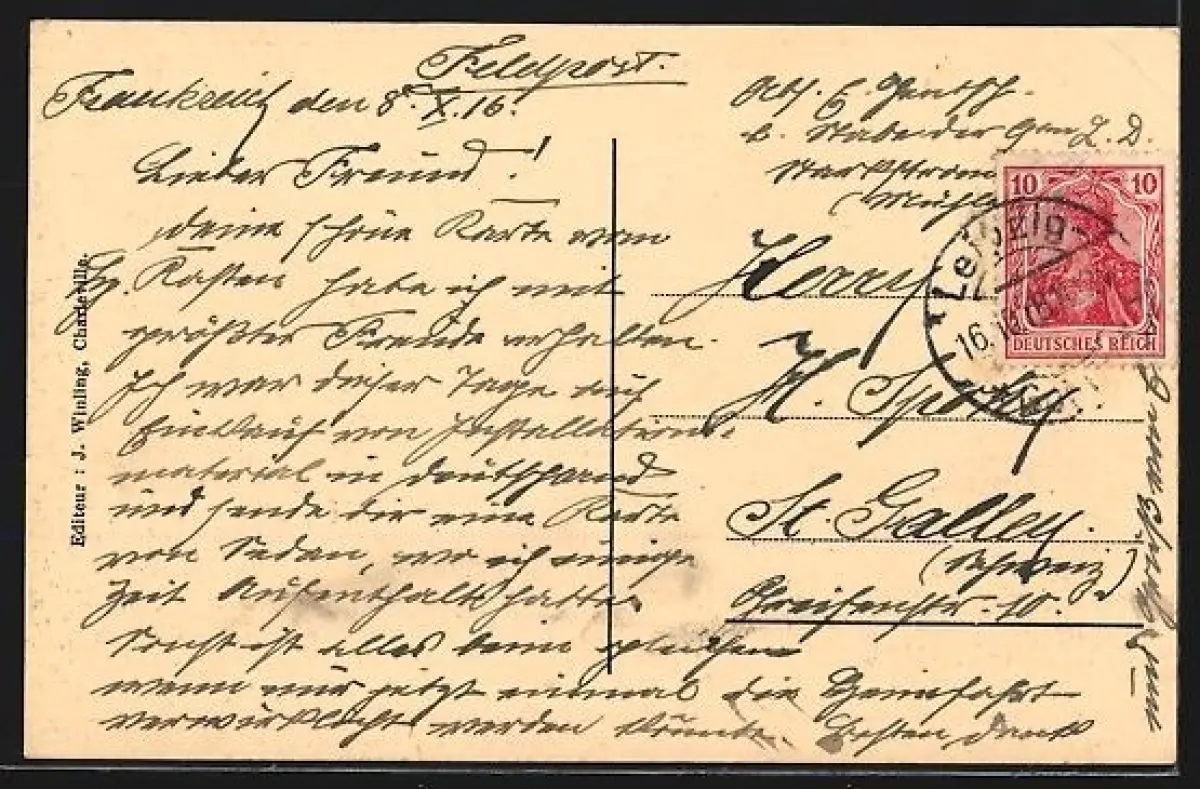 Feldpost.
Frankreich den 8. X. 16.
Lieber Freund!
deine schöne Karte vom
Kasten habe ich mit
größter Freude erhalten.
Ich war dieser Tage auf
Einkauf von Installations-
material in Deutschland
und sende dir eine Karte
von Sedan, wo ich einige
Zeit Aufenthalt hatte.
Sonst ist alles beim gleichen
wenn nur jetzt einmal die Heimfahrt
verwirklicht werden könnte. Besten Dank
und
Abs. E.
b. Stabe der Gen Z. D.
Starkstrom
(Mühl
Herrn
H.
St. Gallen.
(Schweiz)
10.
10 10
DEUTSCHES REICH
Leipzig
16.
Editeur : J. Winling, Charleville.